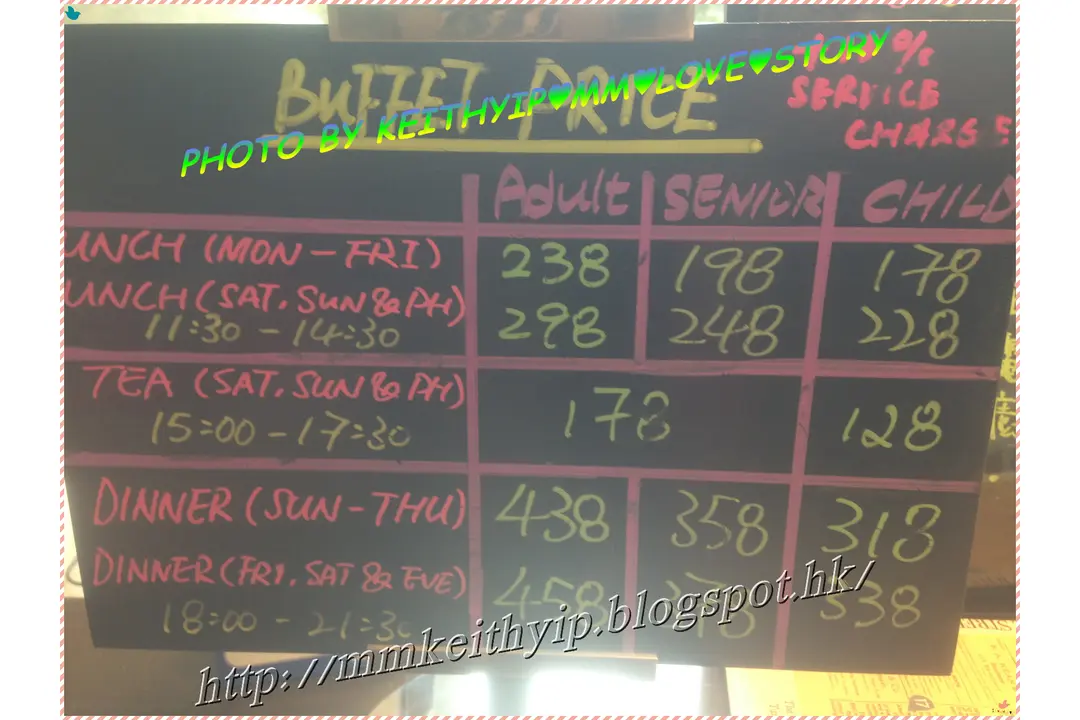 BUFFET PRICE
% SERVICE CHARGE
PHOTO BY KEITHYIP♥MM♥LOVE♥STORY
Adult SENIOR CHILD
UNCH (MON-FRI) 238 198 178
UNCH (SAT, SUN & PH) 298 248 228
11:30 - 14:30
TEA (SAT, SUN & PH) 178 128
15:00 - 17:30
DINNER (SUN-THU) 438 358 318
DINNER (FRI, SAT & EVE) 458 338
18:00 - 21:30
http://mmkeithyip.blogspot.hk/